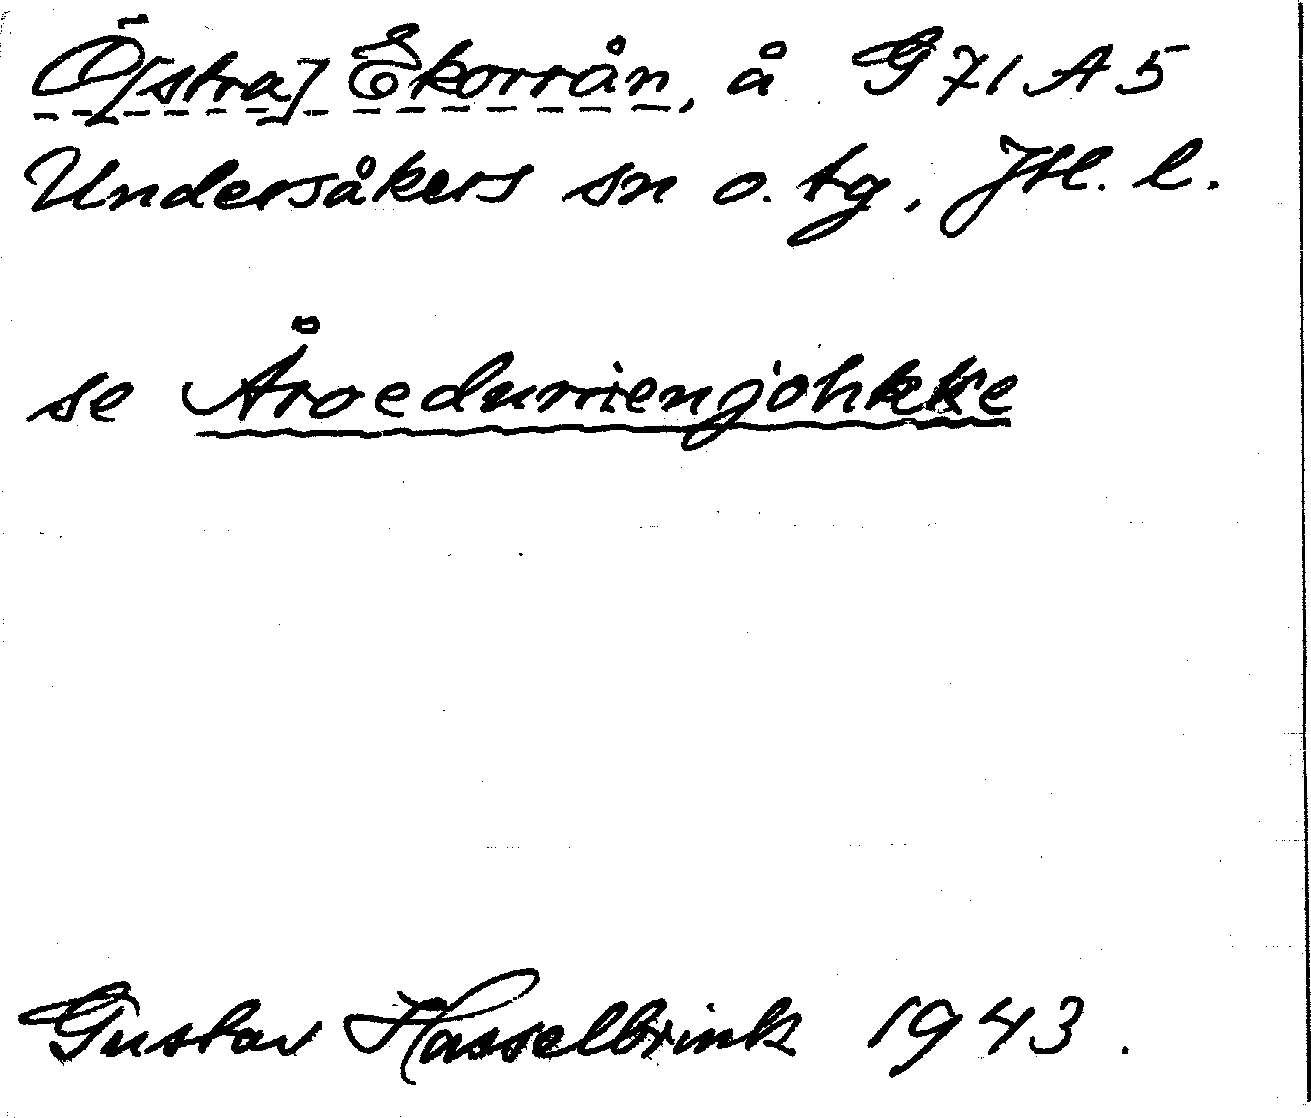 Ö[stra] Ekorrån, å G 71 A 5
Undersåkers sn o. tg, Jtl. l.
se Åroedurrienjohkke
Gustav Hasselbrink 1943.